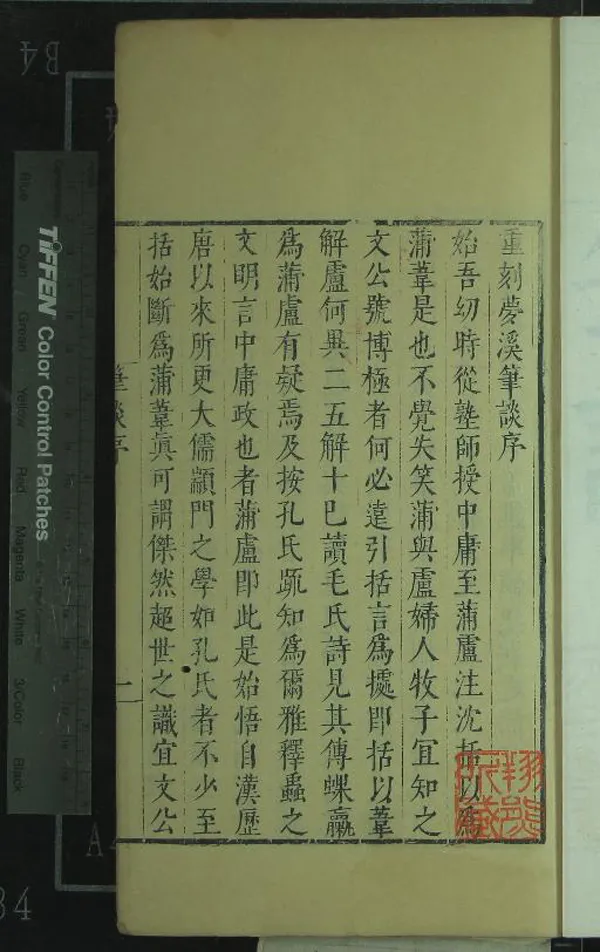 重刻夢溪筆談序
始吾幼時從塾師授中庸至蒲盧注沈括以為
蒲葦是也不覺失笑蒲與盧婦人牧子宜知之
文公號博極者何必遠引括言為據即括以葦
解盧何異二五解十已讀毛氏詩見其傳蜾蠃
為蒲盧有疑焉及按孔氏䟽知為爾雅釋蟲之
文明言中庸政也者蒲盧即此是始悟自漢歷
唐以來所更大儒顓門之學如孔氏者不少至
括始斷為蒲葦眞可謂傑然超世之識宜文公
筆談序
一
TIFFEN Color Control Patches
Blue
Cyan
Green
Yellow
Red
Magenta
White
3/Color
Black
B4
A4